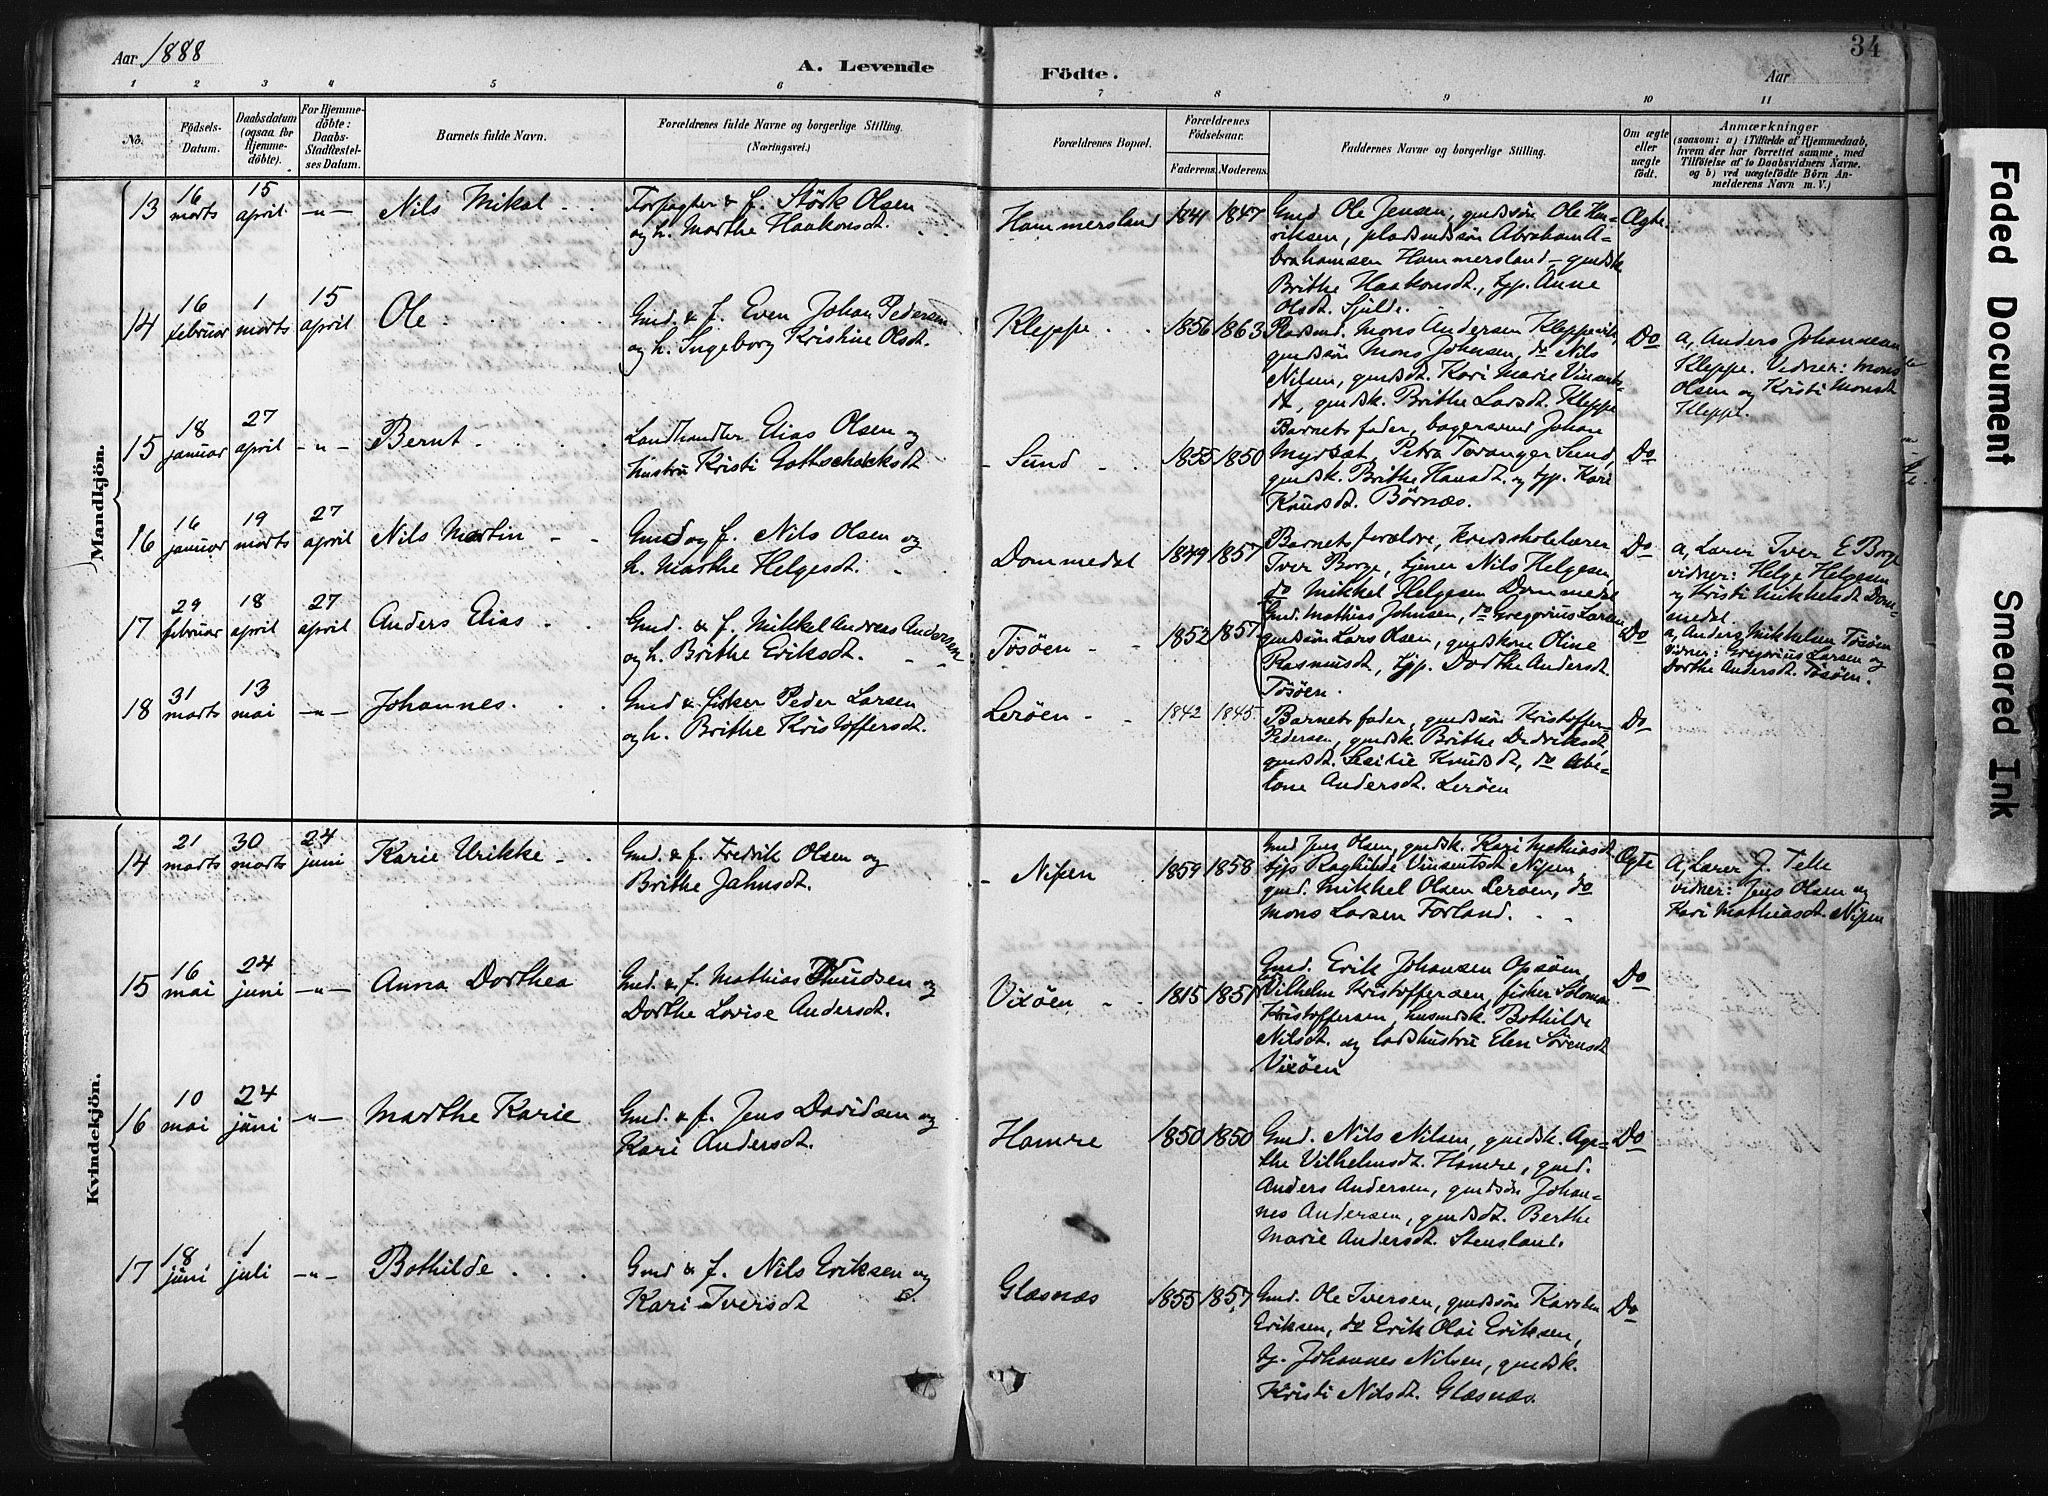 Aar 1888
A. Levende Födte.
Aar
34
1 2 3 4 5 6 7 8 9 10 11
No.
Födsels-Datum.
Daabsdatum (ogsaa for Hjemme-döbte).
For Hjemme-döbte: Daabs-Stadfæstel-ses Datum.
Barnets fulde Navn.
Forældrenes fulde Navne og borgerlige Stilling.
(Næringsvei.)
Forældrenes Bopæl.
Forældrenes Födselsaar.
Faderens. Moderens.
Faddernes Navne og borgerlige Stilling.
Om ægte eller uægte födt.
Anmærkninger
(saasom: a) i Tilfælde af Hjemmedaab,
hvem der har forrettet samme, med
Tilföielse af to Daabsvidners Navne.
og b) ved uægtefödte Börn An-
melderens Navn m. V.)
Mandkjön.
13 16 marts 15 april -"- Nils Mikal
Forpagter & f. Störk Olsen
og h. Marthe Haakonsdt.
Hammersland 1841 1847
Gmd Ole Jensen, gmdssön Ole Hen-
riksen, pladsmdssön Abraham A-
brahamsen Hammersland, gmdsk.
Brithe Haakonsdt., typ. Anne
Olsdt. Fjelde.
Ægte.
14 16 februar 1 marts 15 april Ole
Gmd. & f. Even Johan Pedersen
og h. Ingeborg Kristine Olsdt.
Kleppe 1856 1863
Pladsmd. Mons Andersen Kleppevik,
gmdssön Mons Johnsen, do Nils
Nilsen, gmdsdt. Kari Marie Vinsents-
dt, gmdsk. Brithe Larsdt. Kleppe
Do
a, Anders Johannesen
Kleppe. Vidner: Mons
Olsen og Kristi Monsdt
Kleppe.
15 18 januar 27 april -"- Bernt
Landhandler Elias Olsen og
hustru Kristi Gothschalksdt
Sund 1855 1850
Barnets fader, bagersvend Johan
Myrsæt, Petra Taranger Sund,
gmdsk. Brithe Hansdt. og typ. Kari
Knudsdt. Börnæs.
Do
16 16 januar 19 marts 27 april Nils Martin
Gmd og f. Nils Olsen og
h. Marthe Helgesdt.
Dommedal 1849 1857
Barnets forældre, kredsskolelærer
Iver Borge, tjener Nils Helgesen,
do Mikkel Helgesen Dommedal
Do
a, Lærer Iver E Borge
vidner: Helge Helgesen
og Kristi Mikkelsdt Dom-
medal
17 29 februar 18 april 27 april Anders Elias
Gmd. & f. Mikkel Andreas Andersen
og h. Brithe Eriksdt.
Tösöen 1852 1857
Gmd. Mathias Johnsen, do Gregorius Larsen,
gmdssön Lars Olsen, gmdskone Oline
Rasmusdt, typ. Dorthe Andersdt.
Tösöen.
Do
a, Anders Mikkelsen Tösöen
vidner: Gregorius Larsen og
Dorthe Andersdt. Tösöen.
18 31 marts 13 mai -"- Johannes
Gmd & fisker Peder Larsen
og h. Brithe Kristoffersdt.
Leröen 1842 1845
Barnets fader, gmdssön Kristoffer
Pedersen, gmdsk. Brithe Didriksdt,
gmdsdt. Sesilie Knudsdt, do Abe-
lone Andersdt. Leröen
Do
Kvindekjön.
14 21 marts 30 marts 24 juni Karie Urikke
Gmd. & f. Fredrik Olsen og
Brithe Jahnsdt.
Nipen 1859 1858
Gmd Jens Olsen, gmdsk. Kari Mathiasdt
typ Raghilde Vinsentsdt Nipen,
gmd. Mikkel Olsen Leröen, do
Mons Larsen Forland.
Ægte
a, Lærer J. Tele
vidner: Jens Olsen og
Kari Mathiasdt. Nipen
15 16 mai 24 juni -"- Anna Dorthea
Gmd. & f. Mathias Knudsen og
Dorthe Lovise Andersdt.
Vixöen 1815 1851
Gmd. Erik Johansen Opsöen,
Vilhelm Kristoffersen, fisker Salomon
Kristoffersen, husmdsk. Bothilde
Nilsdt. og lodshustru Elen Sörensdt
Vixöen
Do
16 10 mai 24 juni -"- Marthe Karie
Gmd. & f. Jens Davidsen og
Kari Andersdt.
Hamre 1850 1850
Gmd. Nils Nilsen, gmdsk. Aga-
the Vilhelmsdt. Hamre, gmd.
Anders Andersen, gmdssön Johan-
nes Andersen, gmdsdt. Berthe
Marie Andersdt. Stensland.
Do
17 18 juni 1 juli -"- Bothilde
Gmd & f. Nils Eriksen og
Kari Iversdt
Glæsnæs 1855 1857
Gmd. Ole Iversen, gmdssön Karsten
Eriksen, do Erik Olai Eriksen,
tj. Johannes Nilsen, gmdsk.
Kristi Nilsdt. Glæsnæs.
Do
Faded Document
Smeared Ink